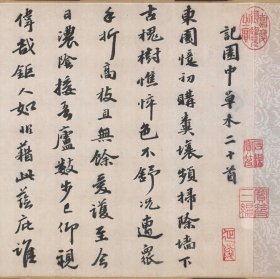 記園中草木二十首
東園憶初購糞壤頻掃除墻下
古槐樹憔悴色不舒況遭衆
手折高枝且無餘愛護至今
日濃陰接吾廬數步已仰視
偉哉鉅人如非藉此蔭庇誰